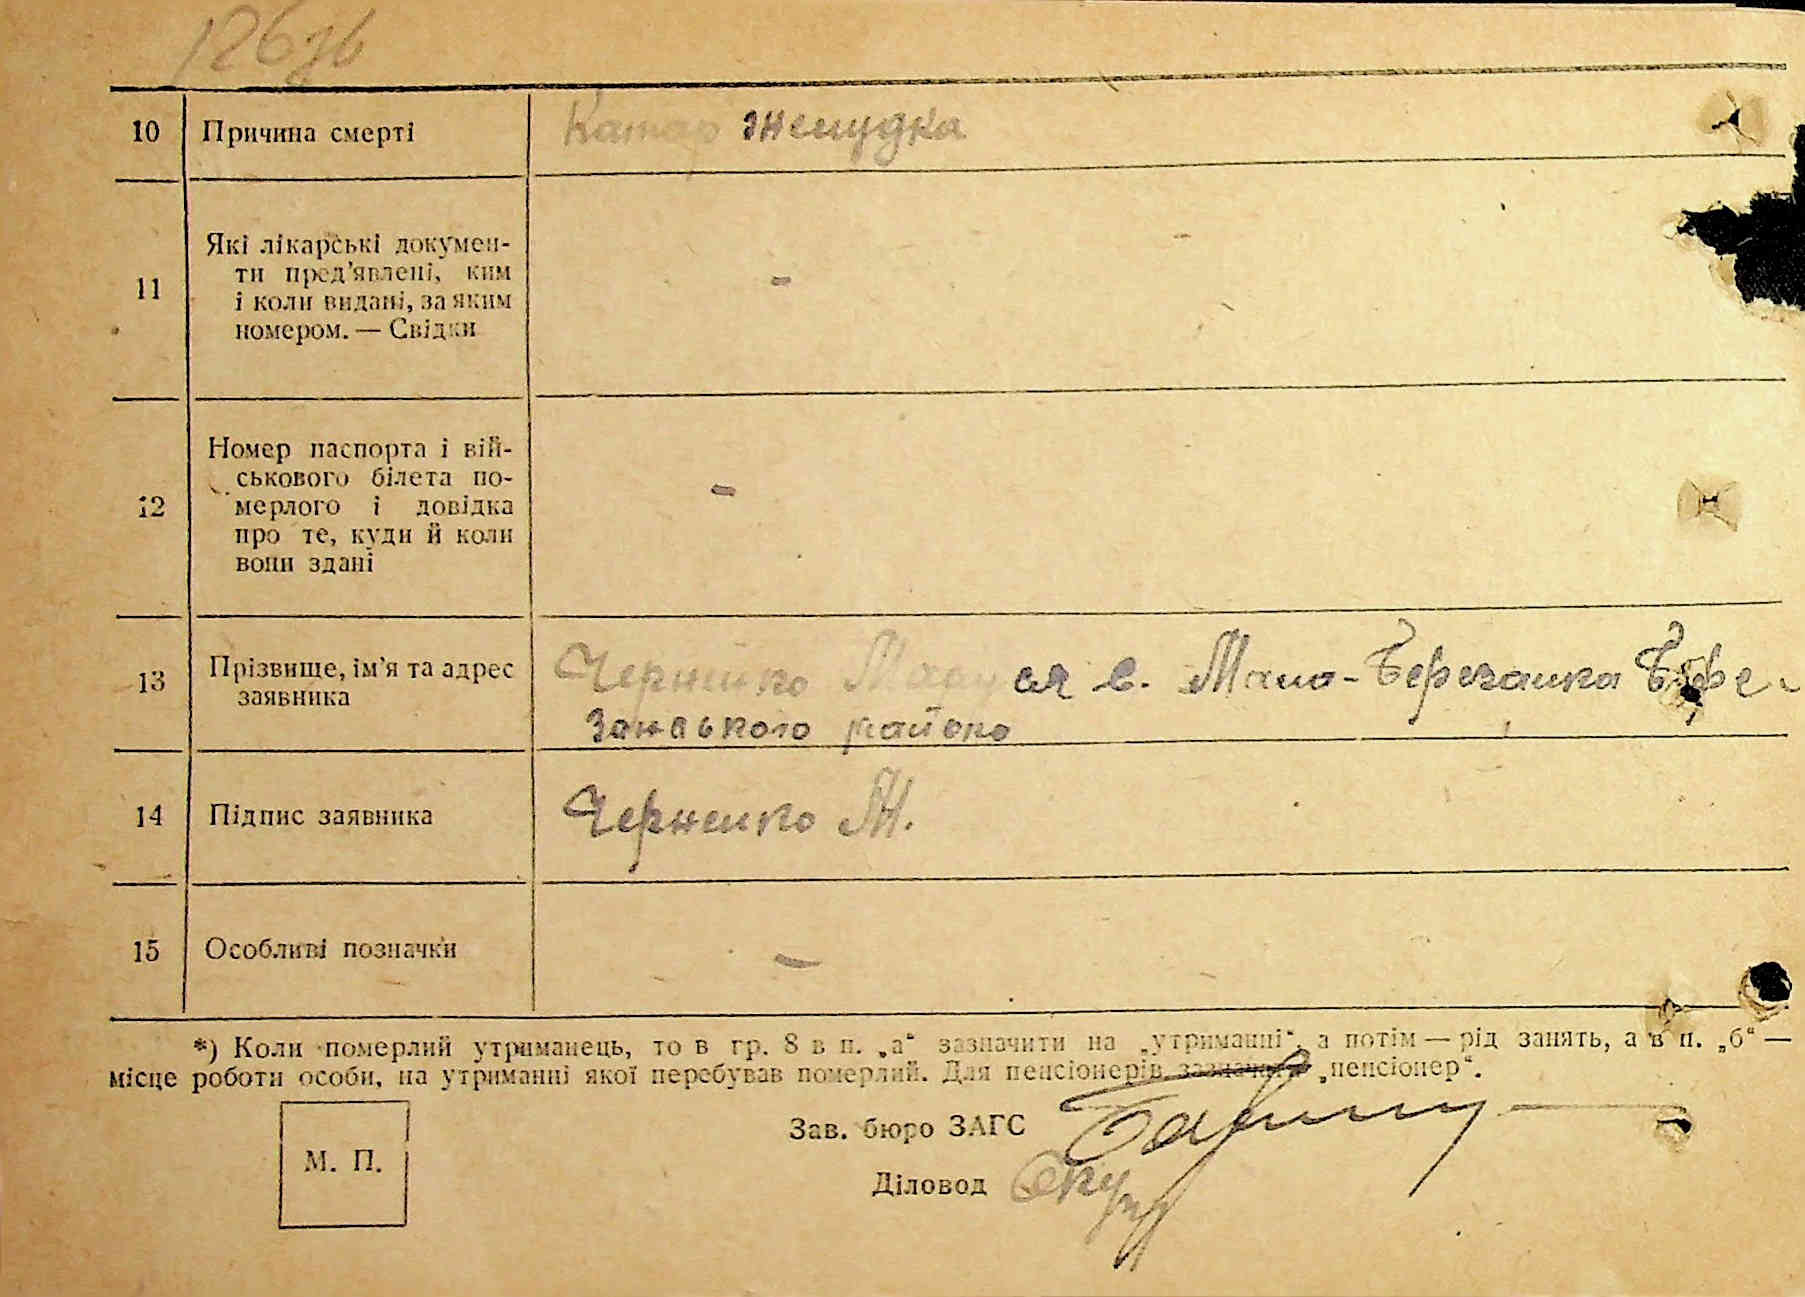 126зв
10 Причина смерті Катар жeлудка
11 Які лікарські докумен-
ти пред'явлені, ким
і коли видані, за яким
номером. — Свідки
-
12 Номер паспорта і вій-
ськового білета по-
мерлого і довідка
про те, куди й коли
вони здані
-
13 Прізвище, ім'я та адрес
заявника
Чернейко Маруся с. Мало-Березанка Бере-
занського району
14 Підпис заявника Чернейко М.
15 Особливі позначки -
*) Коли померлий утриманець, то в гр. 8 в п. „а“ зазначити на „утриманні“, а потім — рід занять, а в п. „б“ —
місце роботи особи, на утриманні якої перебував померлий. Для пенсіонерів зазначати „пенсіонер“.
Зав. бюро ЗАГС
М. П.
Діловод